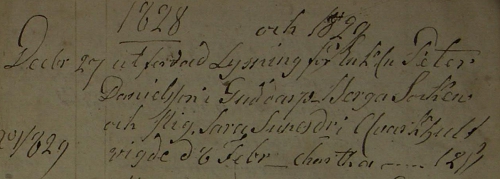 1828 och 1829
Decbr 27 utfärdad Lysning för Enkln Peter
Danielson i Guddarp Berga Socken
och Pig. Sara Svensdr i Qvarnhult
1829 vigde d 6 Febr